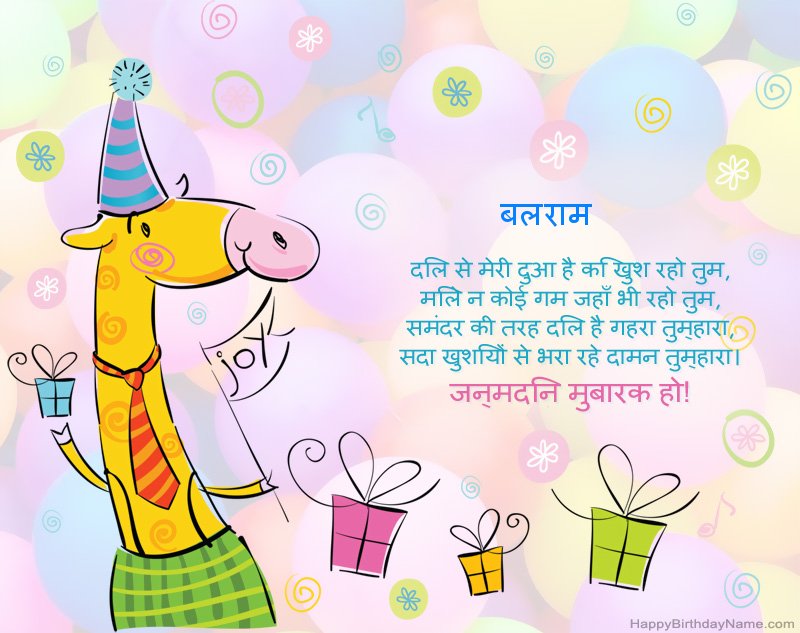 बलराम
joy
दिल से मेरी दुआ है कि खुश रहो तुम,
मिले न कोई गम जहाँ भी रहो तुम,
समंदर की तरह दिल है गहरा तुम्हारा,
सदा खुशियों से भरा रहे दामन तुम्हारा।
जन्मदिन मुबारक हो!
HappyBirthdayName.com